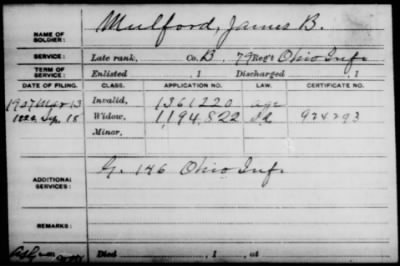 NAME OF SOLDIER: Mulford, James B.
SERVICE: Late rank, Co. B, 79 Reg't Ohio Inf.
TERM OF SERVICE: Enlisted , 1 Discharged , 1
DATE OF FILING. CLASS. APPLICATION NO. LAW. CERTIFICATE NO.
1907 Mar 13 Invalid, 1361220 age
18 Widow, 1,194,822 924293
Minor,
ADDITIONAL SERVICES: G. 146 Ohio Inf.
REMARKS:
Died , 1 , at